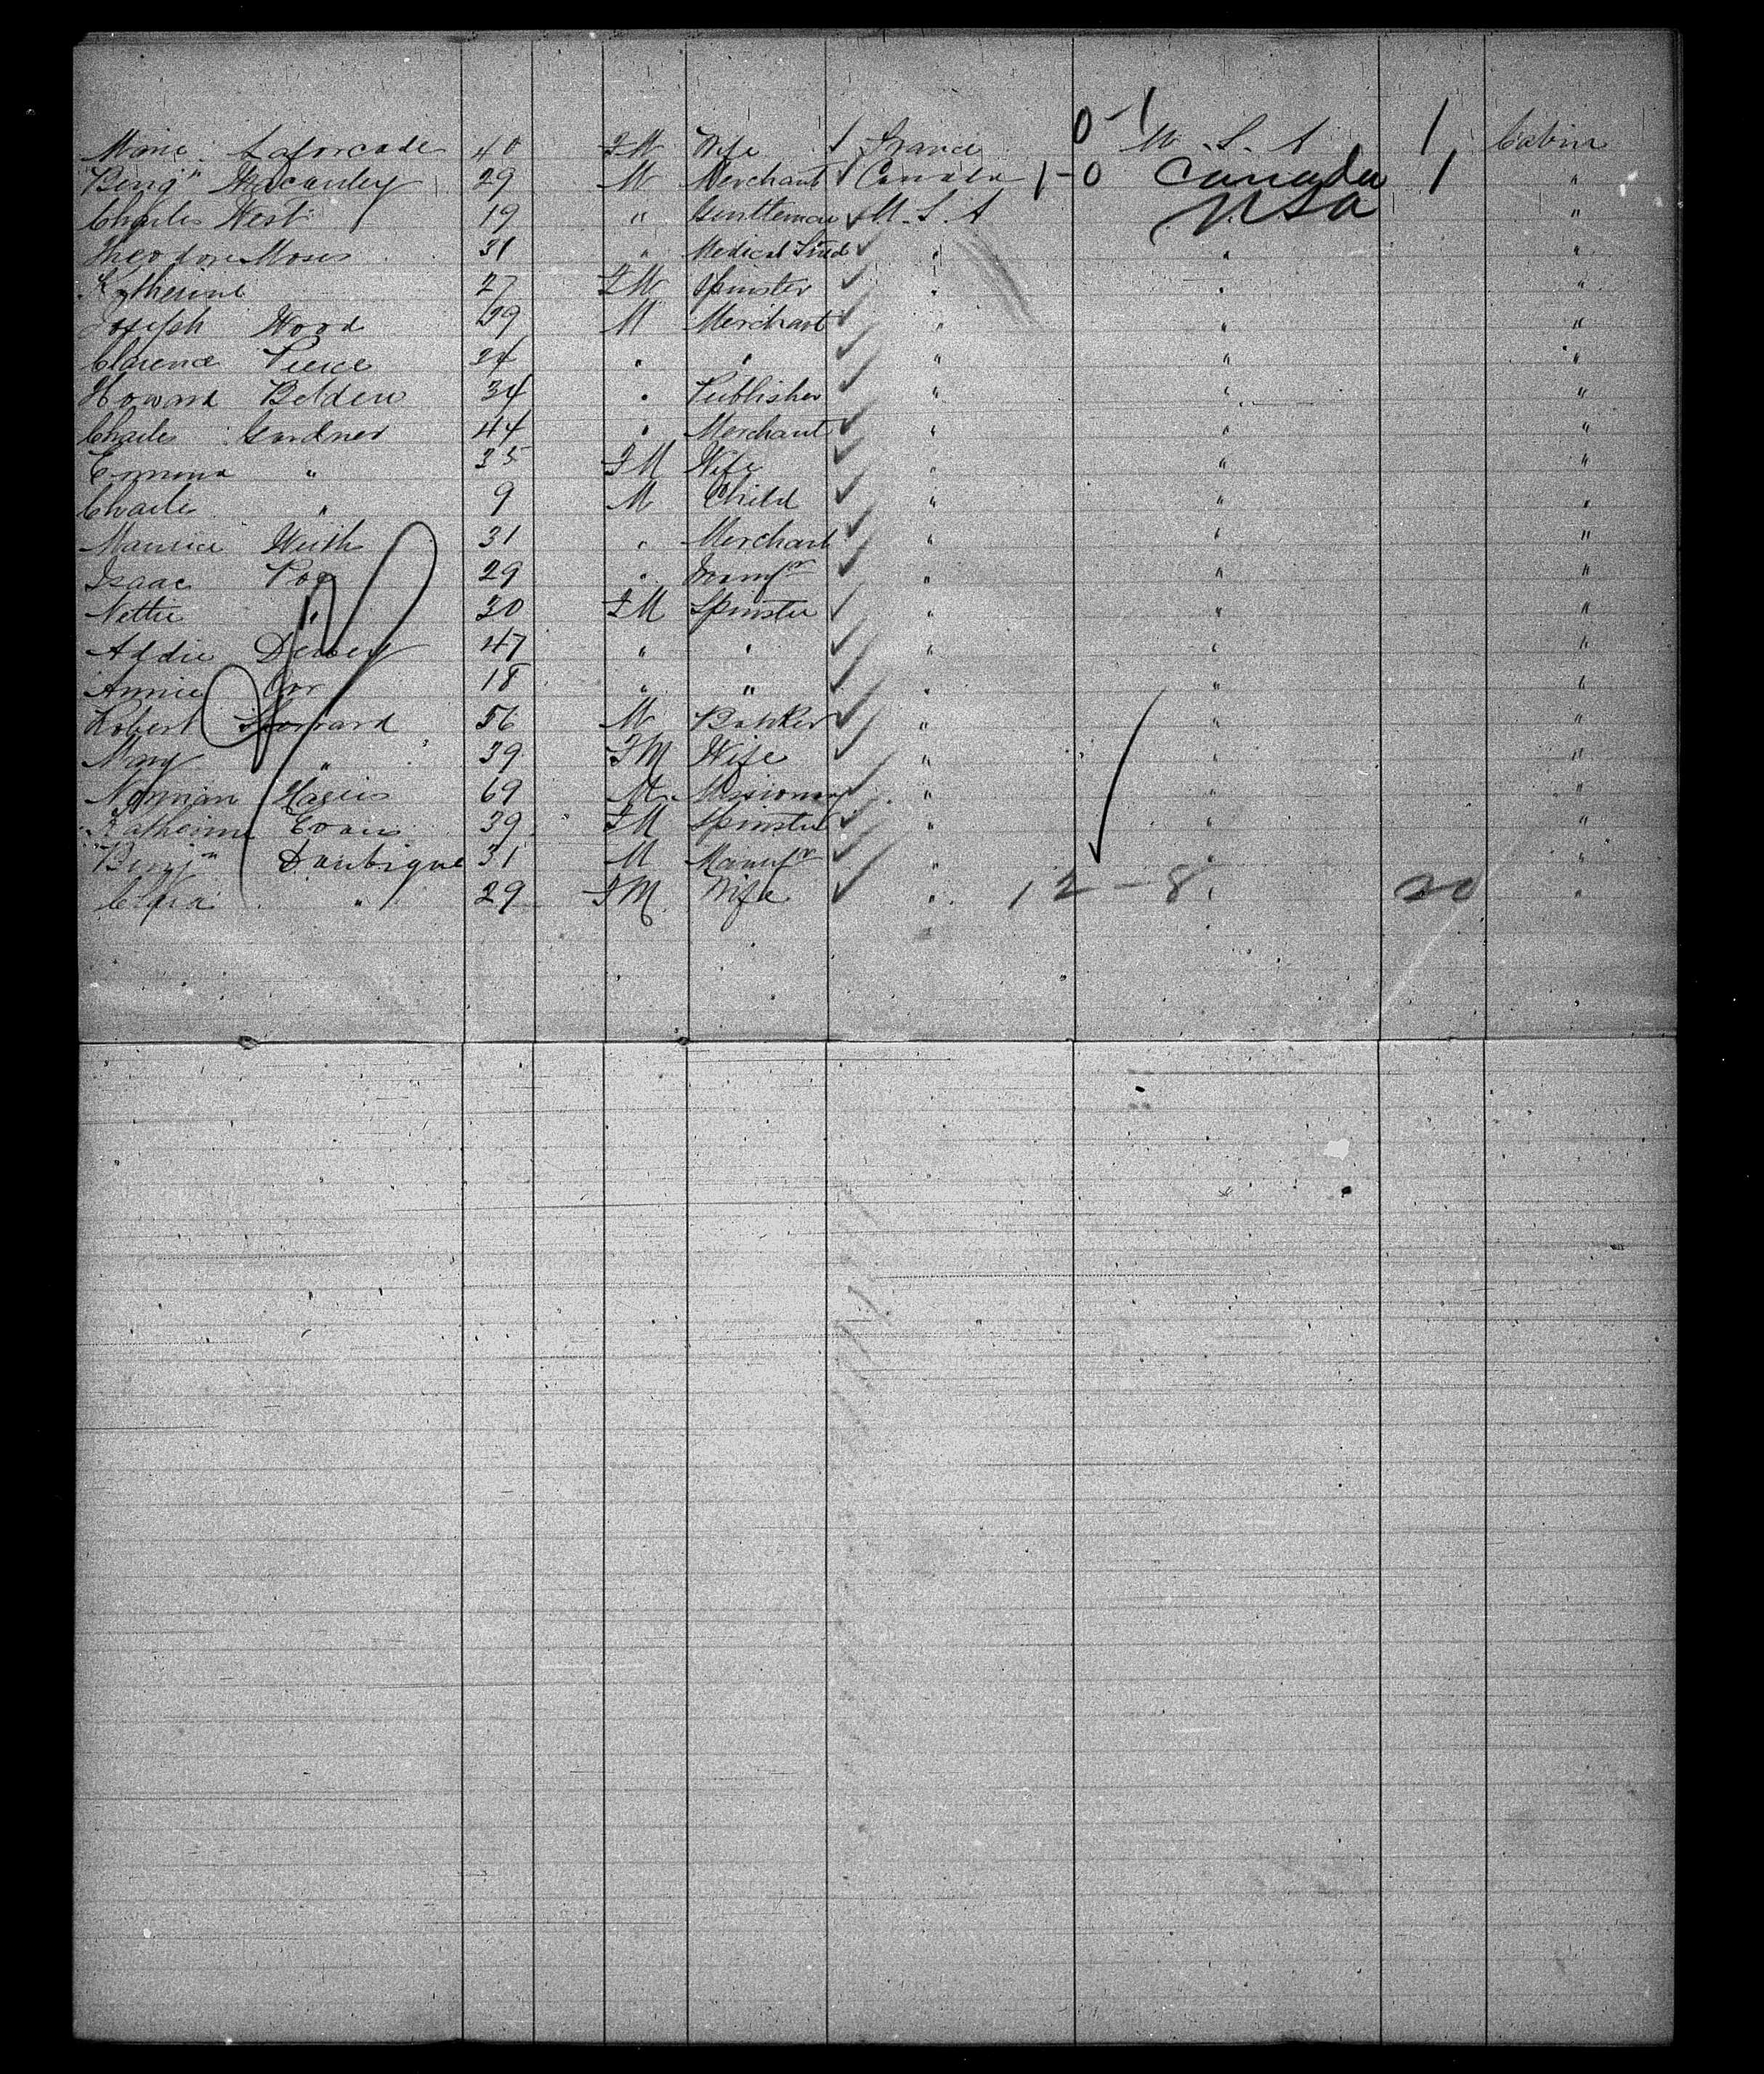 0-1
Marie Laforcade 40 FM Wife France U.S.A 1 Cabin
Benj" Macauley 29 M Merchant Canada 1-0 Canada 1 "
Charles West 19 " Gentleman U.S.A USA "
Theodore Moses 31 " Medical Stud " " "
Katherine 27 FM Spinster " " "
Joseph Wood 29 M Merchant " " "
Clarence Pierce 24 " " " " "
Howard Belden 34 " Publisher " " "
Charles Gardner 44 " Merchant " " "
Emma " 35 FM Wife " " "
Charles " 9 M Child " " "
Maurice 31 " Merchant " " "
Isaac 29 " Manufr " " "
Nettie " 30 FM Spinster " " "
Addie Dewey 47 " " " " "
Annie 18 " " " " "
Robert 56 M Banker " " "
Mary " 39 FM Wife " " "
Norman Harris 69 M Missionary " " "
Katherine Evans 39 FM Spinster " " "
Benjn Daubigne 31 M Manufr " " "
" 29 FM Wife " 12-8 " 20 "